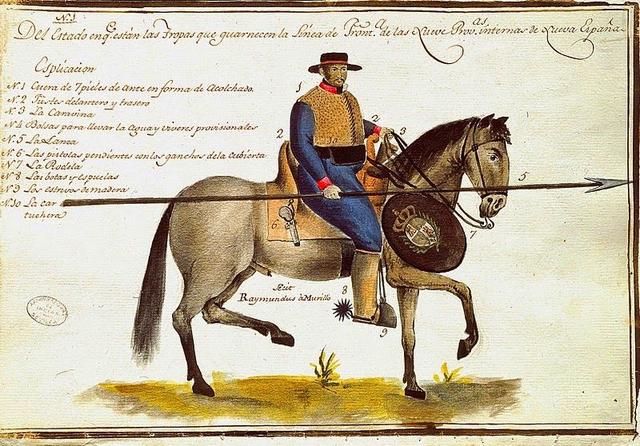 N. 1
Del Estado en q.e están las Tropas que guarnecen la Linea de Front.a de las Nueve Prov.as internas de Nueva España
Esplicacion
N. 1 Cuera de 7 pieles de Ante en forma de Acolchado.
N. 2 Fuste delantero y trasero
N. 3 La Caravina
N. 4 Bolsas para llevar la Agua y viveres provisionales
N. 5 La Lanza
N. 6 Las pistolas pendientes con los ganchos de la Cubierta
N. 7 La Rodela
N. 8 Las botas y espuelas
N. 9 Los estrivos de madera
N. 10 La car
tuchera
1
2
2
3
5
6
7
8
9
Fecit
Raymundus à Murillo